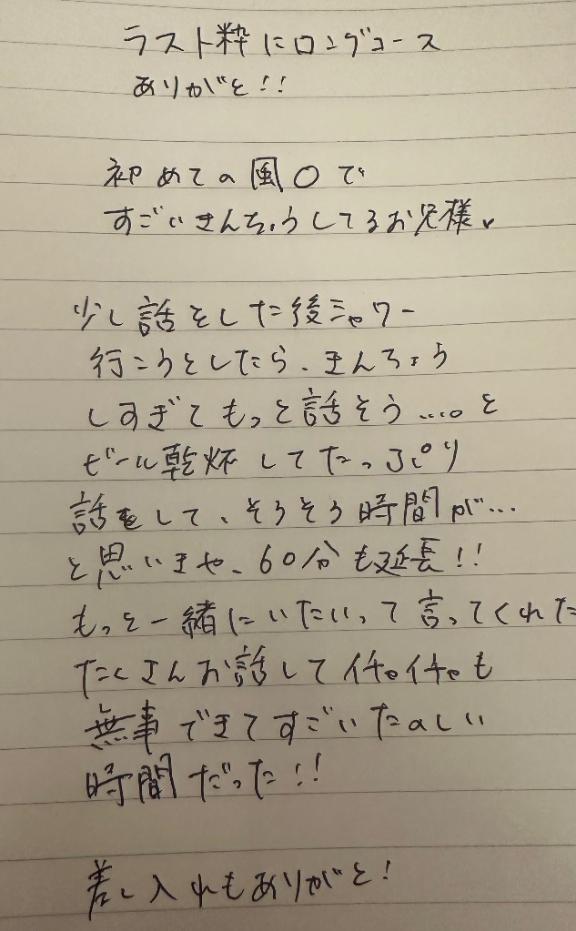 ラスト粋にロングコース
ありがと!!
初めての風〇で
すごいきんちょうしてるお兄様
少し話をした後シャワー
行こうとしたら、きんちょう
しすぎてもっと話そう....。と
ビール乾杯してたっぷり
話をして、そろそろ時間が...
と思いきや、60分も延長!!
もっと一緒にいたいって言ってくれた
たくさんお話してイチャイチャも
無事できてすごいたのしい
時間だった!!
差し入れもありがと!